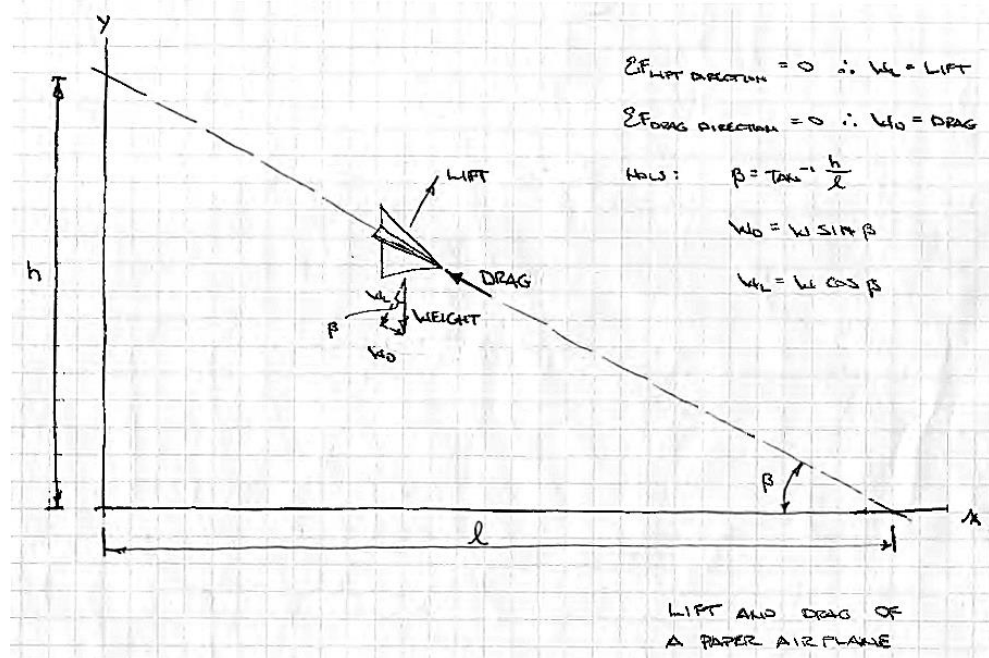 Y
ΣF LIFT DIRECTION = 0 ∴ W_L = LIFT
ΣF DRAG DIRECTION = 0 ∴ W_D = DRAG
NOW: β = TAN⁻¹ h/l
W_D = W SIN β
W_L = W COS β
LIFT
h
DRAG
W_L
WEIGHT
β
W_D
β
X
l
LIFT AND DRAG OF
A PAPER AIRPLANE